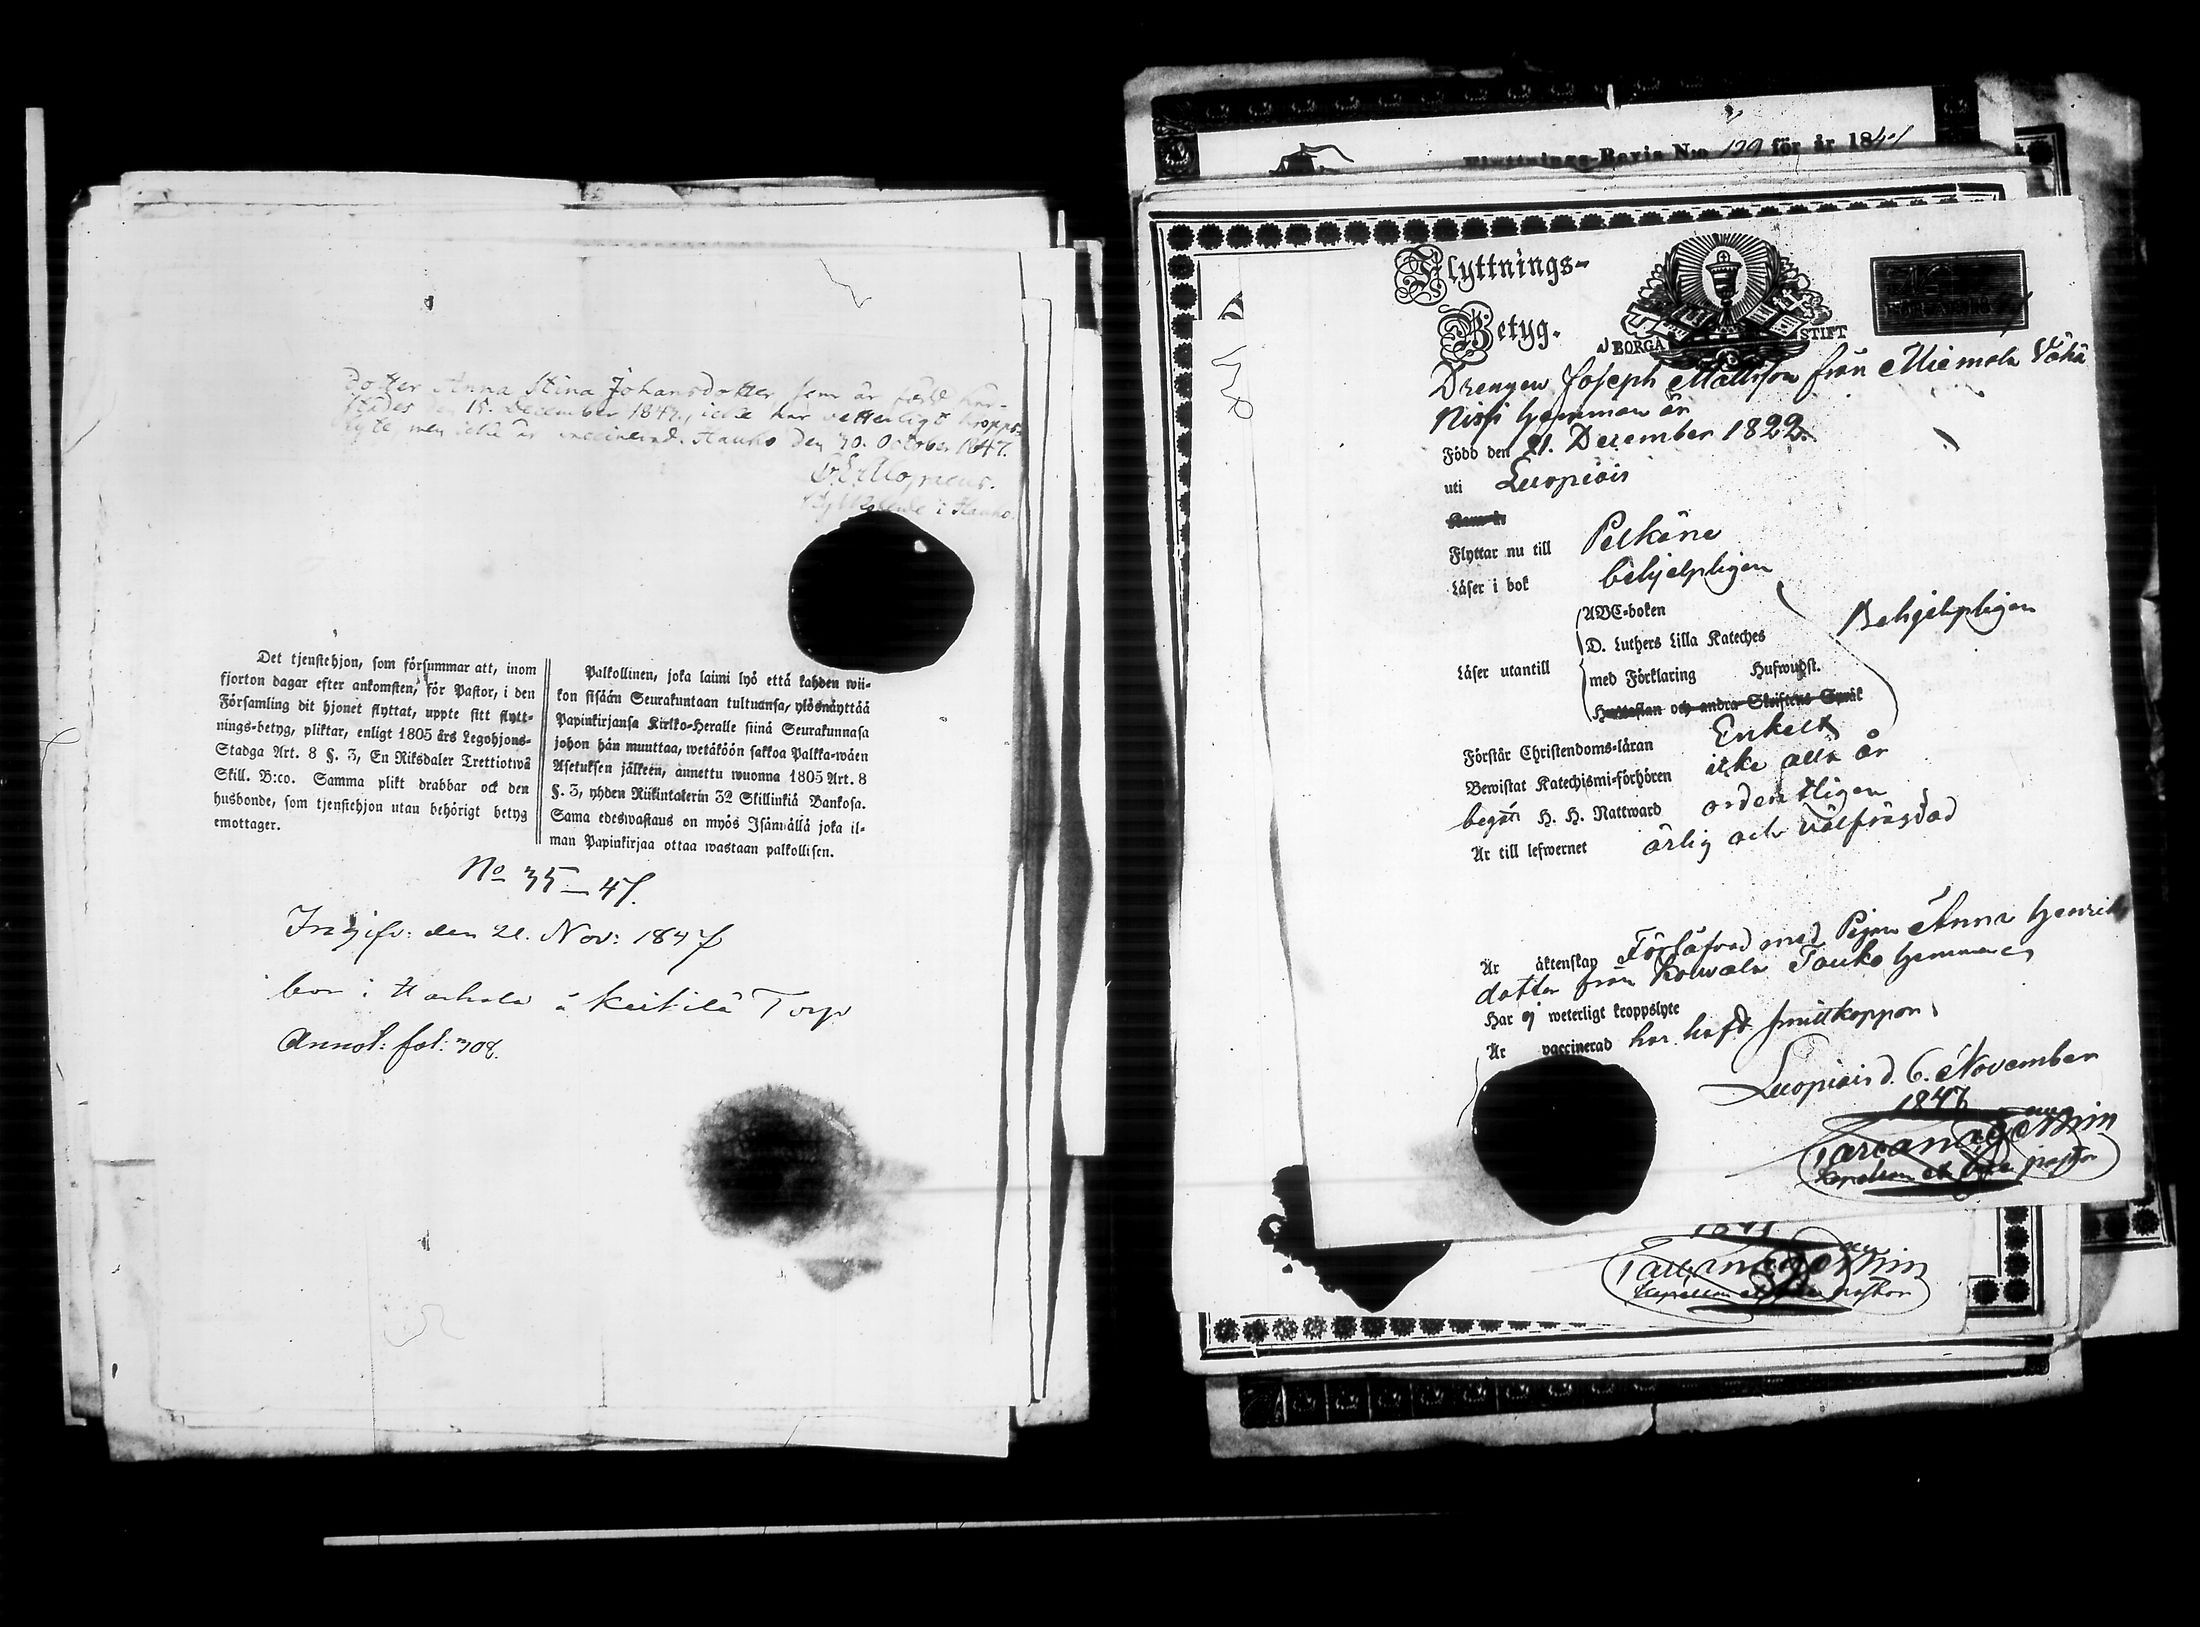 Dotter Anna Stina Johansdotter, som är född här-
städes den 15. December 1847, icke har vetterligt kropps-
lyte, men icke är vaccinerad. Hauho den 30. October 1847.
i Hauho.
Det tjenstehjon, som försummar att, inom
fjorton dagar efter ankomsten, för Pastor, i den
Församling dit hjonet flyttat, uppte sitt flytt-
nings-betyg, pliktar, enligt 1805 års Legohjons-
Stadga Art. 8 §. 3, En Riksdaler Trettiotwå
Skill. B:co. Samma plikt drabbar ock den
husbonde, som tjenstehjon utan behörigt betyg
emottager.
Palkollinen, joka laimi lyö että kahden wii-
kon sisään Seurakuntaan tultuansa, ylösnäyttää
Papinkirjansa Kirkko-Heralle siinä Seurakunnasa
johon hän muuttaa, wetäköön sakkoa Palkka-wäen
Asetuksen jälkeen, annettu wuonna 1805 Art. 8
§. 3, yhden Riikintalerin 32 Skillinkiä Bankosa.
Sama edeswastaus on myös Isännällä joka il-
man Papinkirjaa ottaa wastaan palkollisen.
No 35–47.
Ingifv: den 21. Nov: 1847
bor i å Keikilä Torp
Annot: fol: 308.
Flyttnings-Bevis N:o 129 för år 184
Flyttnings-
Betyg.
BORGÅ STIFT
Drengen Joseph Mattsson från Miemola Vähä
Nissi hemman är
Född den 21. December 1822.
uti Luopiois
Flyttar nu till Pelkäne
Läser i bok behjelpligen
Läser utantill
ABC-boken
D. Luthers Lilla Kateches
med Förklaring Hufwudst.
Hustaflan och andra Skriftens Språk
Behjelpligen
Förstår Christendoms-läran Enkelt
Bewistat Katechismi-förhören icke alla år
begått H. H. Nattward ordentligen
Är till lefwernet ärlig och välfräjdad
Är äktenskap Förlofvad med Pigan Anna Henriks
dotter från Kowala Tauko hemman
Har ej weterligt kroppslyte
Är vaccinerad har haft smittkoppor.
Luopiois d. 6. November
1847
pastor
1847
pastor